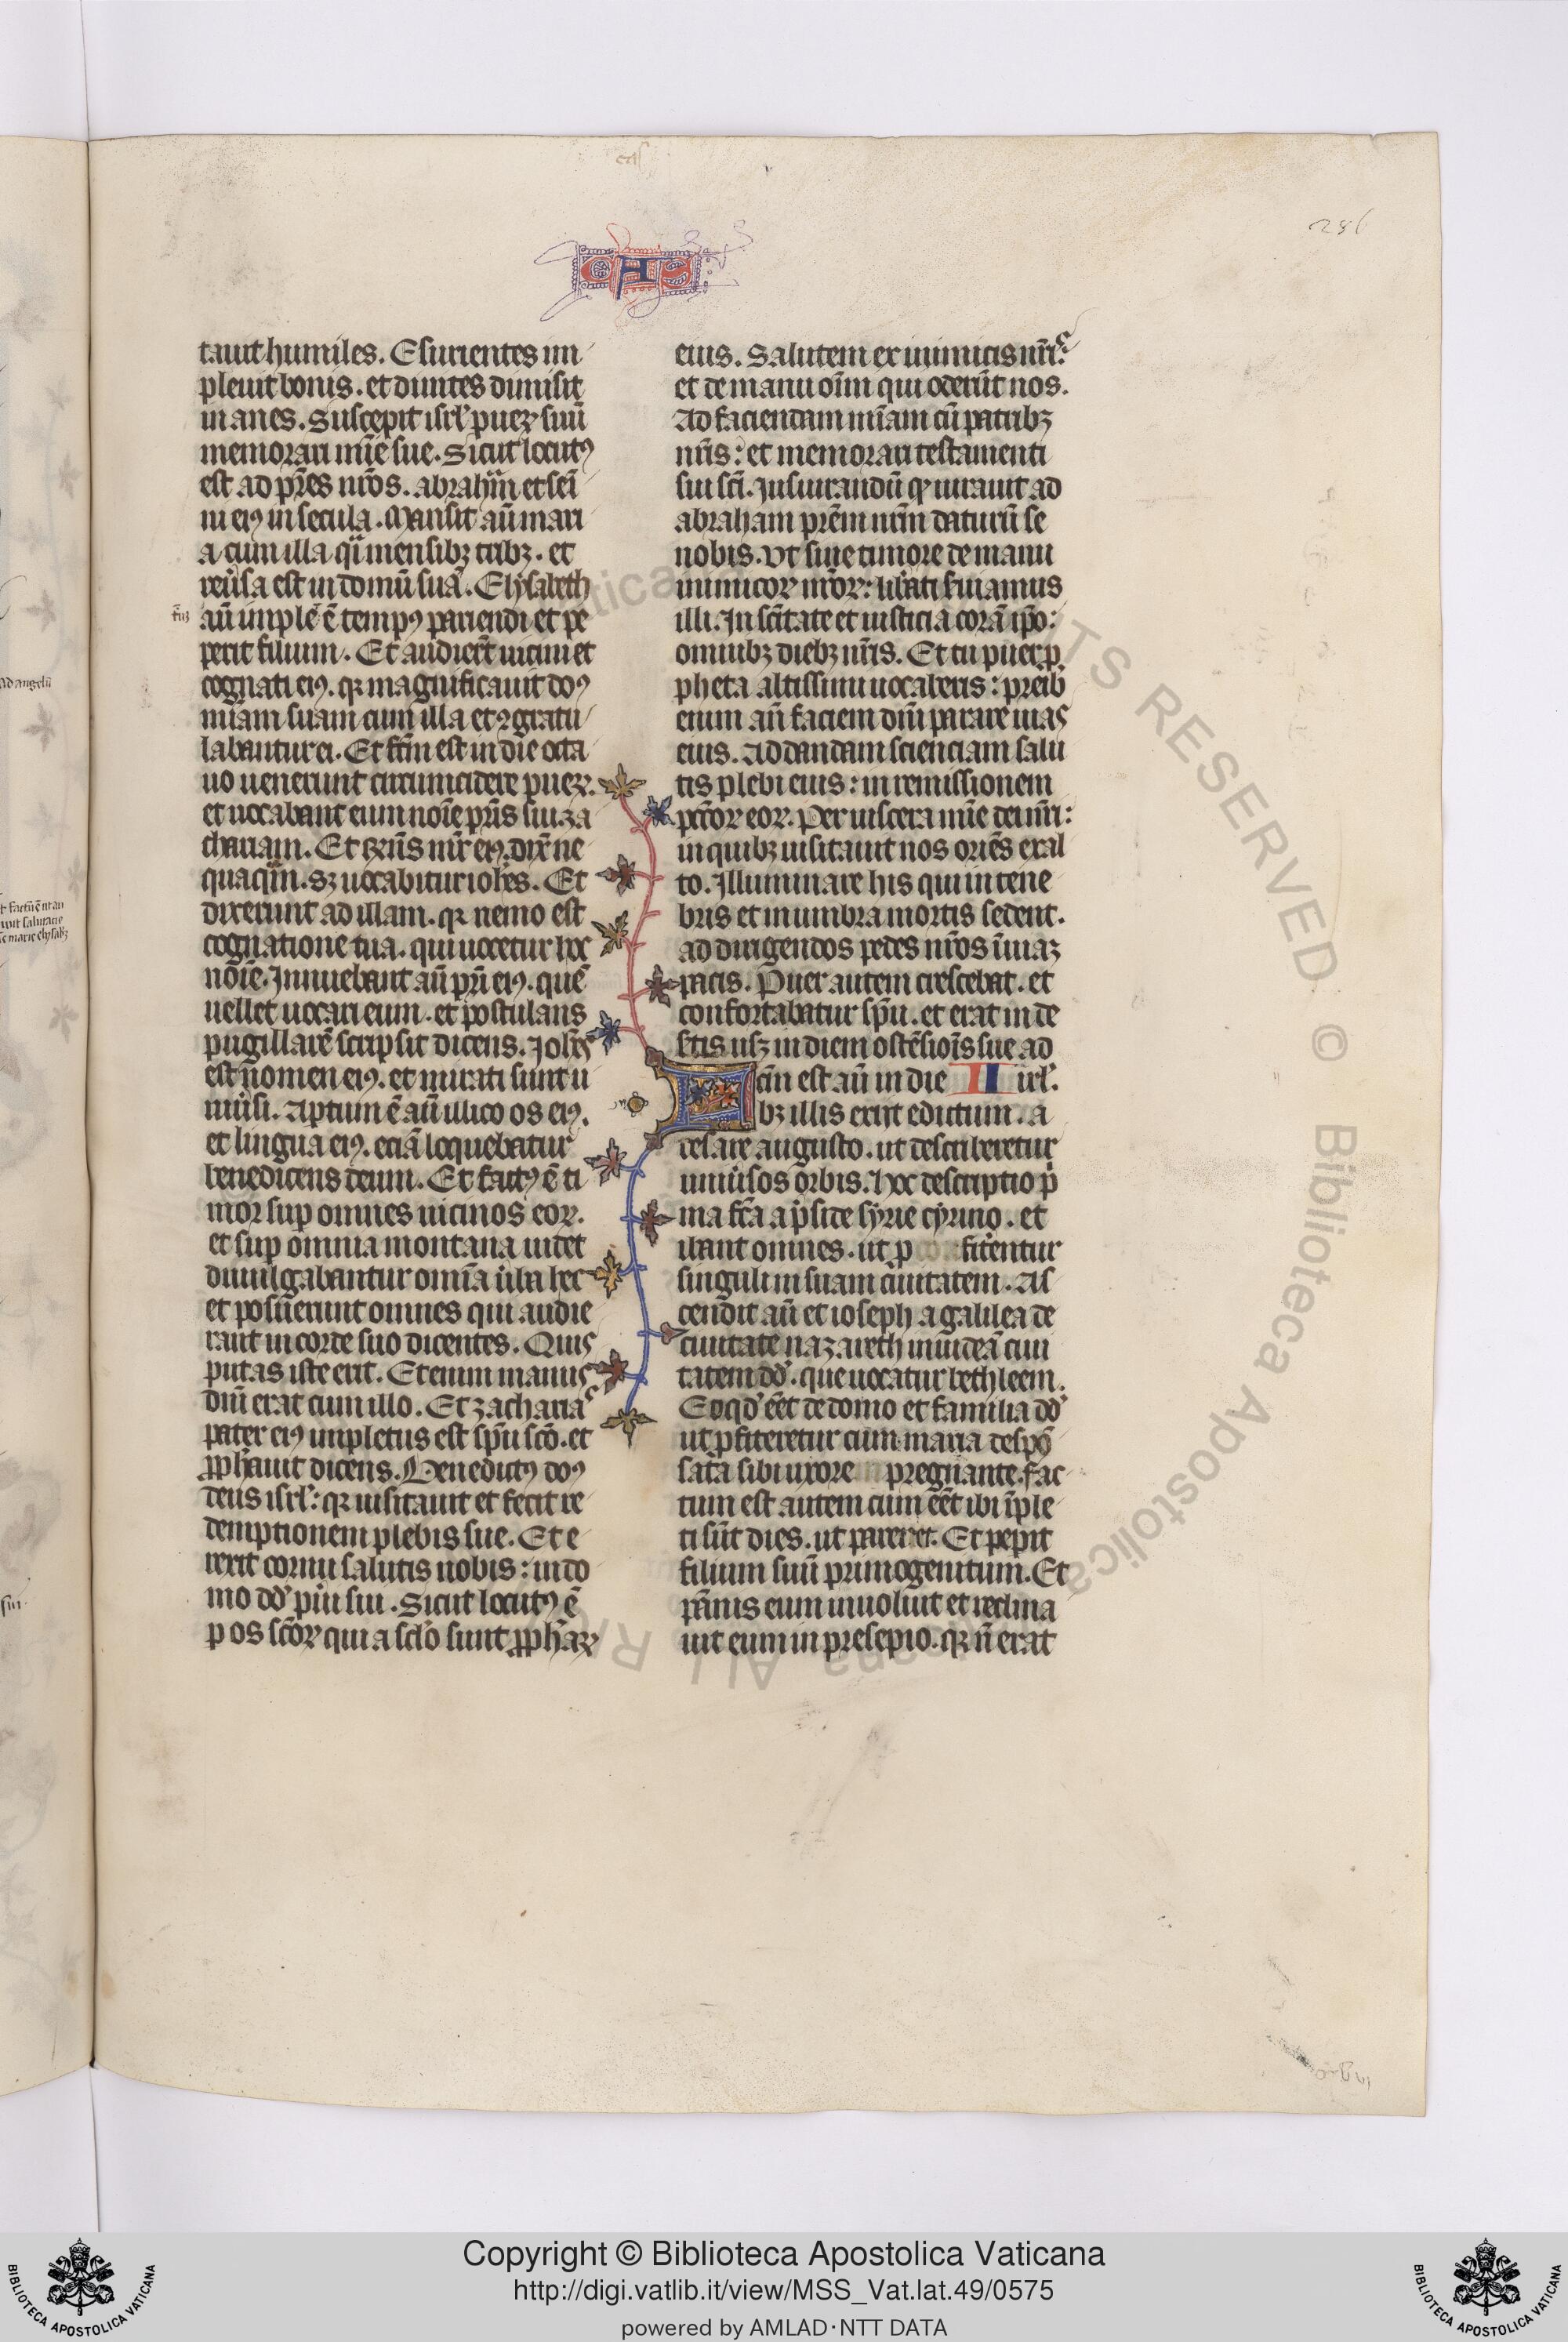 CAS
286
tauit humiles. Esurientes im
pleuit bonis. et diuites dimisit
inanes. Suscepit isrl̄ pueꝝ suū
memorari mīe sue. Sicut locutꝰ
est ad pr̄es nr̄os. abrahā et semī
ni eiꝰ in secula. Mansit aū mari
a cum illa qͣi mensibꝫ tribꝫ. et
reūsa est in domū suā. Elysabeth
aū implē ē tempꝰ pariendi et pe
perit filium. Et audierūt uicini et
cognati eiꝰ. qꝛ magnificauit dōs
mīam suam cum illa et ꝯgratu
labantur ei. Et fc̄m est in die octa
uo uenerunt circumcidere pueꝝ.
et uocabant eum noīe pr̄is sui za
chariam. Et rn̄s mr̄ eiꝰ. dix̄ ne
quaqͣm. sꝫ uocabitur ioh̄es. Et
dixerunt ad illam. qꝛ nemo est
cognatione tua. qui uocetur hoc
noīe. Innuebant aū pr̄i eiꝰ. quē
uellet uocari eum. et postulans
pugillarē scripsit dicens. Joh̄es
est nomen eiꝰ. et mirati sunt u
niūsi. Aptum ē aū illico os eiꝰ.
et lingua eiꝰ. eciā loquebatur
benedicens deum. Et factꝰ ē ti
mor suꝑ omnes uicinos eoꝝ.
et suꝑ omnia montana iudee
diuulgabantur omīa ūba hec
et posuerunt omnes qui audie
rant in corde suo dicentes. Quis
putas iste erit. Etenim manus
dn̄i erat cum illo. Et zacharias
pater eiꝰ impletus est sp̄u sc̄o. et
ꝓph̄auit dicens. Benedictꝰ dōs
deus isrl̄: qꝛ uisitauit et fecit re
demptionem plebis sue. Et e
rexit cornu salutis nobis: in do
mo dd̄ pūi sui. Sicut locutꝰ ē
ꝑ os sc̄oꝝ qui a sclo sunt ꝓph̄aꝝ
eius. Salutem ex inimicis nr̄is
et de manu oīm qui oderūt nos.
Ad faciendam mīam cū patribꝫ
nr̄is: et memorari testamenti
sui sc̄i. Jusiurandū qꝺ iurauit ad
abraham pr̄em nr̄m daturū se
nobis. Vt sine timore de manu
inimicoꝝ nr̄oꝝ: lib̄ati s̄uiamus
illi. In sc̄itate et iusticia corā ip̄o:
omnibꝫ diebꝫ nr̄is. Et tu puer ꝓ
pheta altissimi uocaberis: preib
enim an̄ faciem dn̄i parare uias
eius. Ad dandam scienciam salu
tis plebi eius: in remissionem
pcc̄oꝝ eoꝝ. Per uiscera mīe dei nr̄i:
in quibꝫ uisitauit nos oriēs exal
to. Illuminare his qui in tene
bris et in umbra mortis sedent.
ad dirigendos pedes nr̄os ī uiaꝫ
pacis. Puer autem crescebat. et
confortabatur sp̄u. et erat in de
s̄tis usꝫ in diem ostēsiōis sue ad
c̄m est aū in die II isrl̄.
bꝫ illis exiit edictum. a
cesare augusto. ut describeretur
uniūsos orbis. Hoc descriptio p̄
ma fc̄a a p̄side syrie cyrino. et
ibant omnes. ut ꝓfiterentur
singuli in suam ciuitatem. As
cendit aū et ioseph a galilea de
ciuitate nazareth in iudeā ciui
tatem dd̄. que uocatur bethleem.
Eo qd̄ eēt de domo et familia dd̄
ut ꝓfiteretur cum maria despō
sata sibi uxore pregnante. Fac
tum est autem cum eēt ibi īple
ti sūt dies. ut pareret. Et pepit
filium suū primogenitum. Et
pānis eum inuoluit et reclina
uit eum in presepio. qꝛ n̄ erat
Copyright © Biblioteca Apostolica Vaticana
http://digi.vatlib.it/view/MSS_Vat.lat.49/0575
powered by AMLAD·NTT DATA